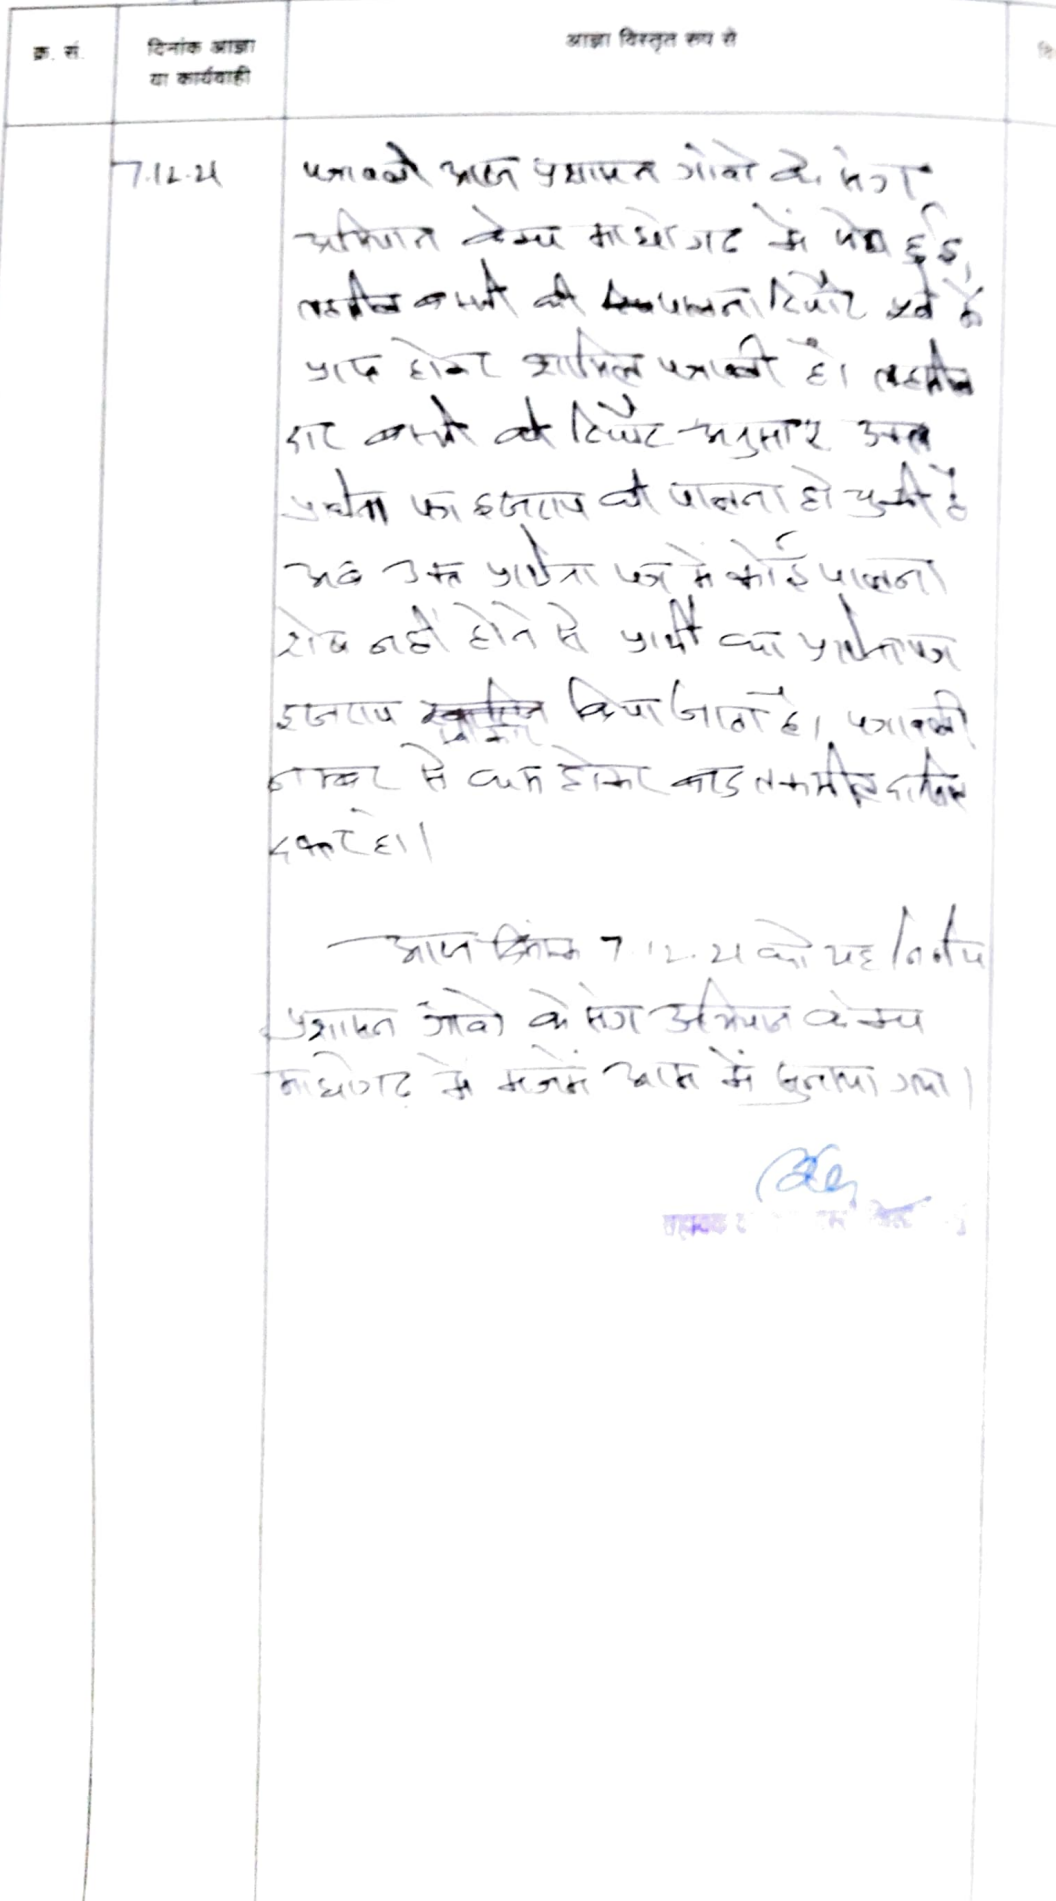 क्र. सं.
दिनांक आज्ञा
या कार्यवाही
आज्ञा विस्तृत रूप से
7.12.21
पत्रावली आज प्रशासन गांवो के संग
अभियान केम्प माधोगढ में पेश हुई,
तहसील बस्सी की पालना रिपोर्ट पूर्व में
प्राप्त होकर शामिल पत्रावली है। तहसील
दार बस्सी की रिपोर्ट अनुसार उक्त
इजराय की पालना हो चुकी है
अब उक्त प्रार्थना पत्र में कोई पालना
शेष नहीं होने से प्रार्थी का प्रार्थनापत्र
इजराय किया जाता है। पत्रावली
नम्बर से कम होकर बाद तकमील दाखिल
दफ्तर हो।
आज दिनांक 7.12.21 को यह निर्णय
प्रशासन गांवो के संग अभियान केम्प
माधोगढ में मजमें आम में सुनाया गया।
सहायक